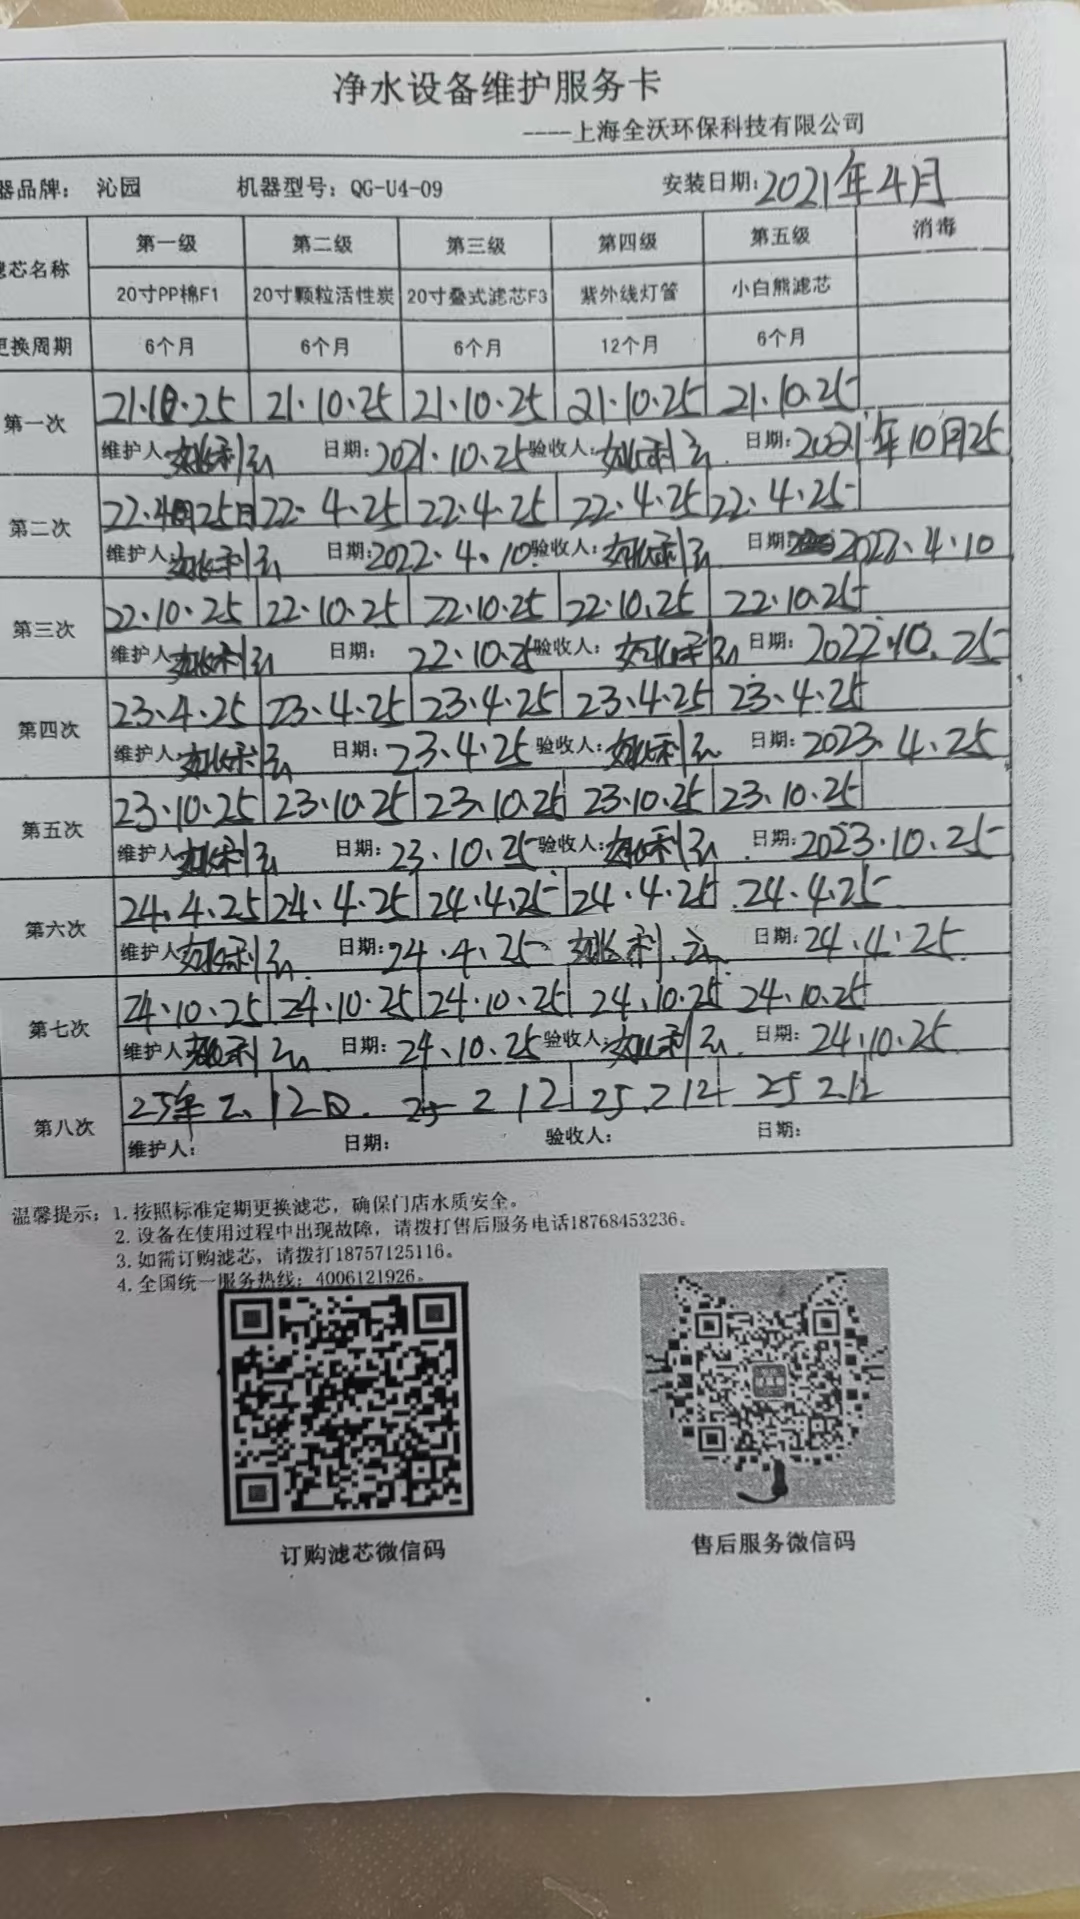 净水设备维护服务卡
----上海全沃环保科技有限公司
器品牌： 沁园 机器型号：QG-U4-09 安装日期：2021年4月
滤芯名称 第一级 第二级 第三级 第四级 第五级 消毒
20寸PP棉F1 20寸颗粒活性炭 20寸叠式滤芯F3 紫外线灯管 小白熊滤芯
更换周期 6个月 6个月 6个月 12个月 6个月
第一次 21.10.25 21.10.25 21.10.25 21.10.25 21.10.25
维护人 日期：2021.10.25 验收人： 日期：2021年10月25
第二次 22.4月25日 22.4.25 22.4.25 22.4.25 22.4.25
维护人 日期：2022.4.10 验收人： 日期 2022.4.10
第三次 22.10.25 22.10.25 22.10.25 22.10.25 22.10.25
维护人 日期： 22.10.25 验收人： 日期：2022.10.25
第四次 23.4.25 23.4.25 23.4.25 23.4.25 23.4.25
维护人 日期：23.4.25 验收人： 日期：2023.4.25
第五次 23.10.25 23.10.25 23.10.25 23.10.25 23.10.25
维护人 日期：23.10.25 验收人： 日期：2023.10.25
第六次 24.4.25 24.4.25 24.4.25 24.4.25 24.4.25
维护人 日期：24.4.25 日期：24.4.25
第七次 24.10.25 24.10.25 24.10.25 24.10.25 24.10.25
维护人 日期：24.10.25 验收人： 日期：24.10.25
第八次 25年2.12日. 25 2 12 25.2 12 25 2.12
维护人： 日期： 验收人： 日期：
温馨提示：1. 按照标准定期更换滤芯，确保门店水质安全。
2. 设备在使用过程中出现故障，请拨打售后服务电话18768453236。
3. 如需订购滤芯，请拨打18757125116。
4. 全国统一服务热线：4006121926。
订购滤芯微信码 售后服务微信码